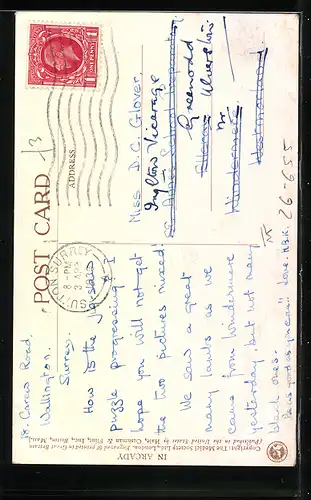 POST CARD
ADDRESS
ONE PENNY
SUTTON SURREY
8 - PM
3 APR
1935
13
18. Carew Road.
Wallington.
Surrey.
How is the jig-saw
puzzle progressing? I
hope you will not get
the two pictures mixed!
We saw a great
many lambs as we
came from Windermere
yesterday, but not many
black ones.
Love. H.B.K.
Miss D. C. Glover.
Ingleton Vicarage
Greenodd
Ulverston
Nr
Windermere
Westmorland
26-655
IN ARCADY
Copyright: The Medici Society, Ltd., London. Engraved & printed in Great Britain
(Published in the United States by Hale, Cushman & Flint, Inc., Boston, Mass.)